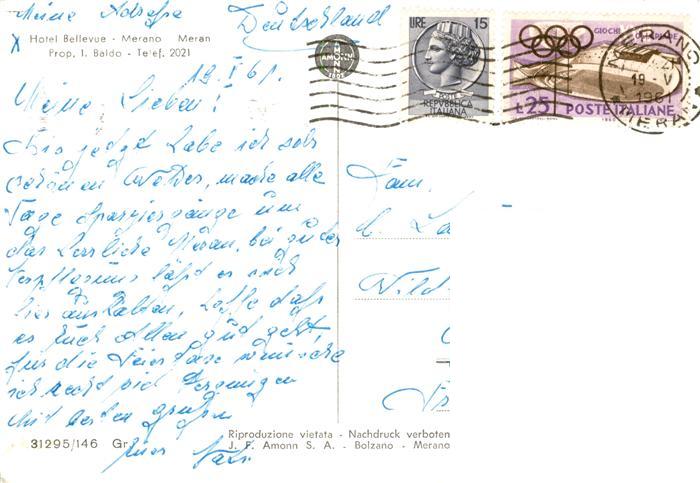 Meine Adresse
Deutschland
X Hotel Bellevue - Merano Meran
Prop. I. Baldo - Telef. 2021
19.V.61.
Meine Lieben!
Bis jetzt habe ich sehr
schönen Wetter, mache alle
Tage Spaziergänge um
das herrliche Meran, bei guter
Verpflegung läßt es sich
hier aushalten, hoffe daß
es Euch Allen gut geht,
für die Feiertage wünsche
ich recht viel Vergnügen
Mit besten Grüßen
Euer
Fam.
Wild
31295/146 Gr.
Riproduzione vietata - Nachdruck verboten
J. F. Amonn S. A. - Bolzano - Merano
AMONN
LIRE 15
POSTE
REPVBBLICA
ITALIANA
GIOCHI OLIMPICI
L.25 POSTE ITALIANE
1960
MERANO
19 V
1961
MERANO